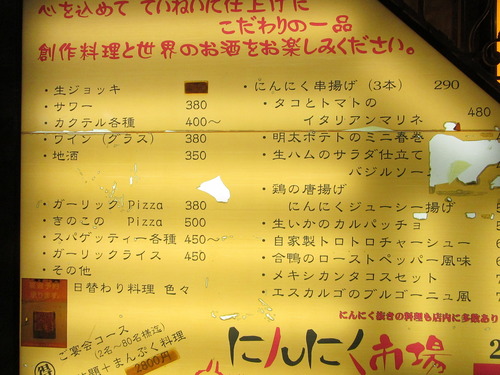 心を込めて ていねいに仕上げに
こだわりの一品
創作料理と世界のお酒をお楽しみください。
・生ジョッキ
・サワー 380
・カクテル各種 400～
・ワイン(グラス) 380
・地酒 350
・ガーリック Pizza 380
・きのこの Pizza 500
・スパゲッティー各種 450～
・ガーリックライス 450
・その他
日替わり料理 色々
ご宴会コース
(2名～80名様迄)
得
題+まんぷく料理
2800円
・にんにく串揚げ (3本) 290
・タコとトマトの
イタリアンマリネ 480
・明太ポテトのミニ春巻
・生ハムのサラダ仕立て
バジルソー
・鶏の唐揚げ
にんにくジューシー揚げ 5
・生いかのカルパッチョ 5
・自家製トロトロチャーシュー 6
・合鴨のローストペッパー風味
・メキシカンタコスセット
・エスカルゴのブルゴーニュ風
にんにく抜きの料理も店内に多数あり
にんにく市場
2